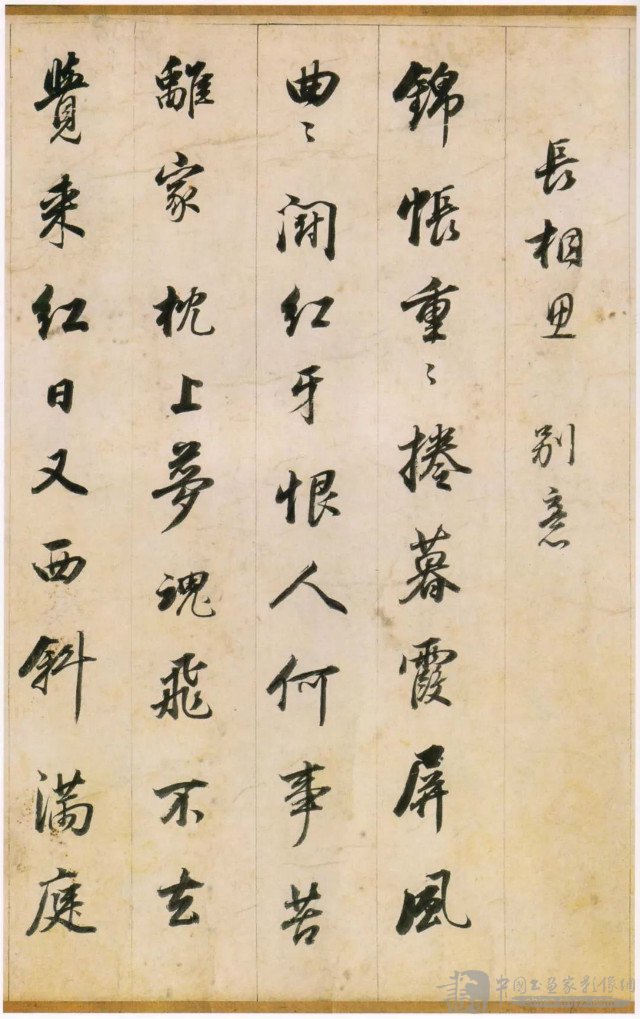 長相思 別意
錦帳重〻捲暮霞屏風
曲〻鬪紅牙恨人何事苦
離家 枕上夢魂飛不去
覺来紅日又西斜滿庭
中国书画家影像网